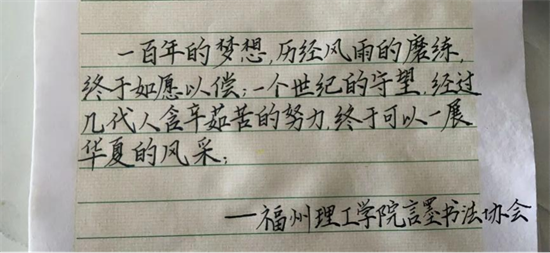 一百年的梦想,历经风雨的磨练,
终于如愿以偿;一个世纪的守望,经过
几代人含辛茹苦的努力,终于可以一展
华夏的风采;
——福州理工学院言墨书法协会